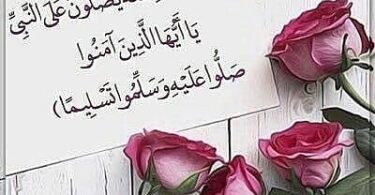 يُصَلُّونَ عَلَى النَّبِيِّ
يَا أَيُّهَا الَّذِينَ آمَنُوا
صَلُّوا عَلَيْهِ وَسَلِّمُوا تَسْلِيمًا)